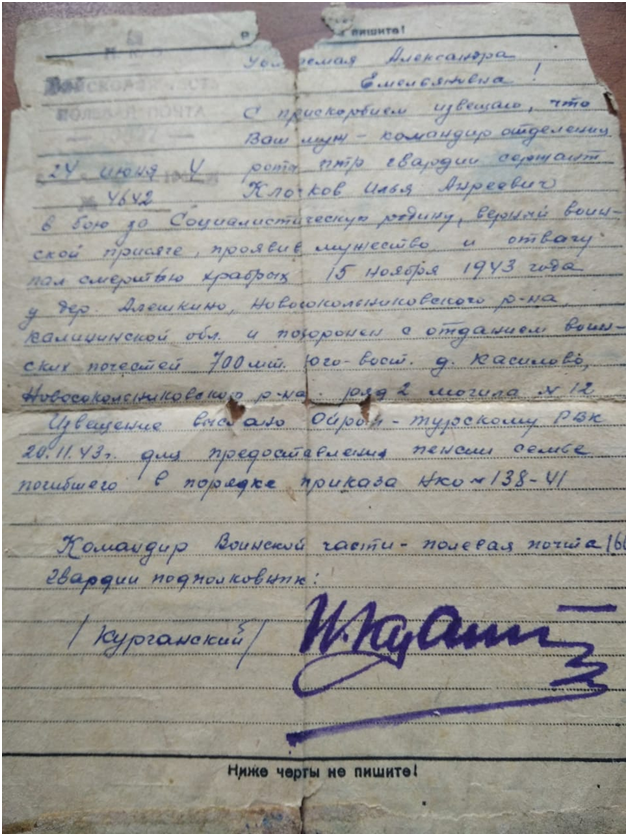 пишите!
Н К О
Войсковая част.
полевая почта
Александра
Емельяновна!
С прискорбием извещаю, что
Ваш муж - командир отделения
24 июня 4
роты гвардии сержант
№ 4642
Клочков Илья Андреевич
в бою за Социалистическую родину, верный воин-
ской присяге, проявив мужество и отвагу
пал смертью храбрых 15 ноября 1943 года
у дер. Алешкино, Новосокольниковского р-на,
Калининской обл. и похоронен с отданием воин-
ских почестей 700 мт. юго-вост. д. Касилово,
Новосокольниковского р-на ряд 2 могила № 12
Извещение выслано Ойрот-турскому РВК
20.11.43г. для предоставления пенсии семье
погибшего в порядке приказа НКО № 138-41
Командир Воинской части - полевая почта
гвардии подполковник:
/Курганский/
Ниже черты не пишите!